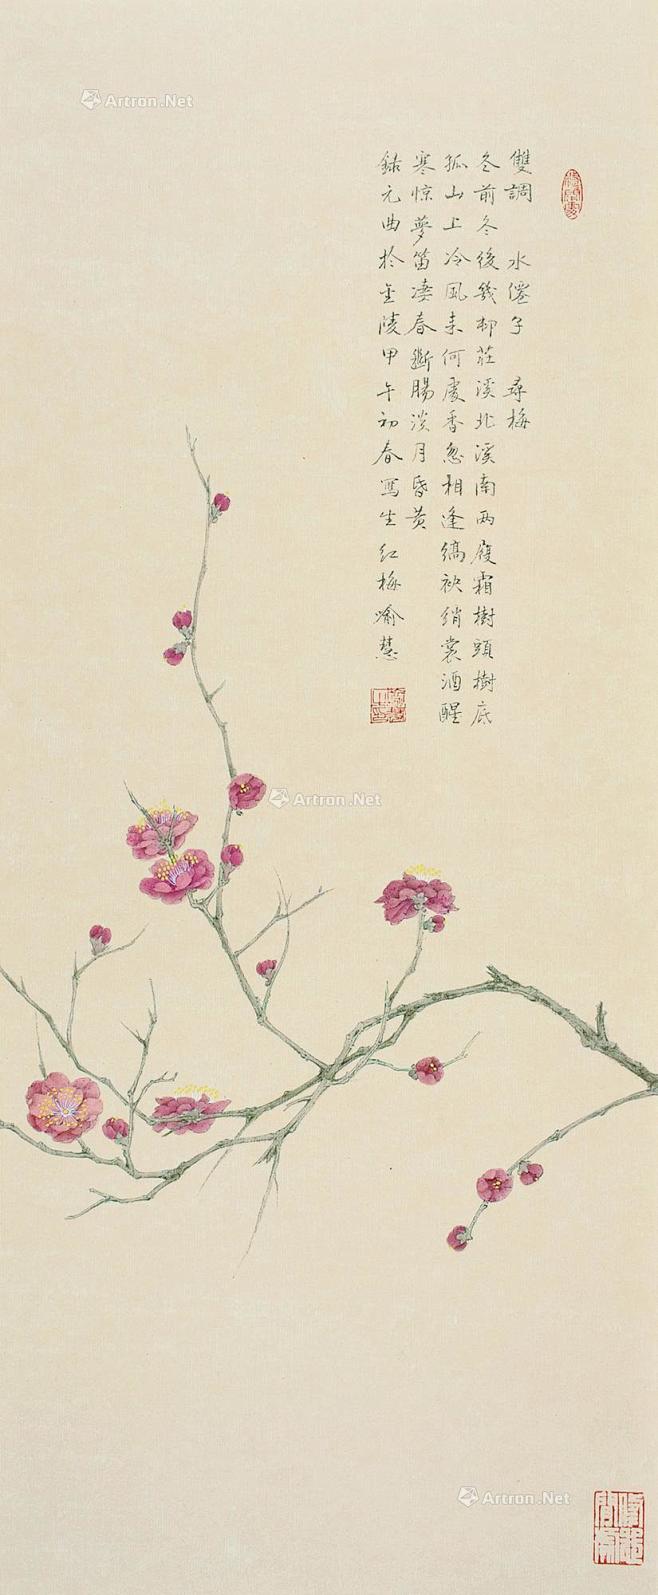 雙調 水僊子 尋梅
冬前冬後幾邨莊溪北溪南兩履霜樹頭樹底
孤山上冷風来何處香忽相逢縞袂綃裳酒醒
寒惊夢笛凄春斷腸淡月昏黄
録元曲於金陵甲午初春寫生红梅喻慧
Artron.Net
Artron.Net
Artron.Net